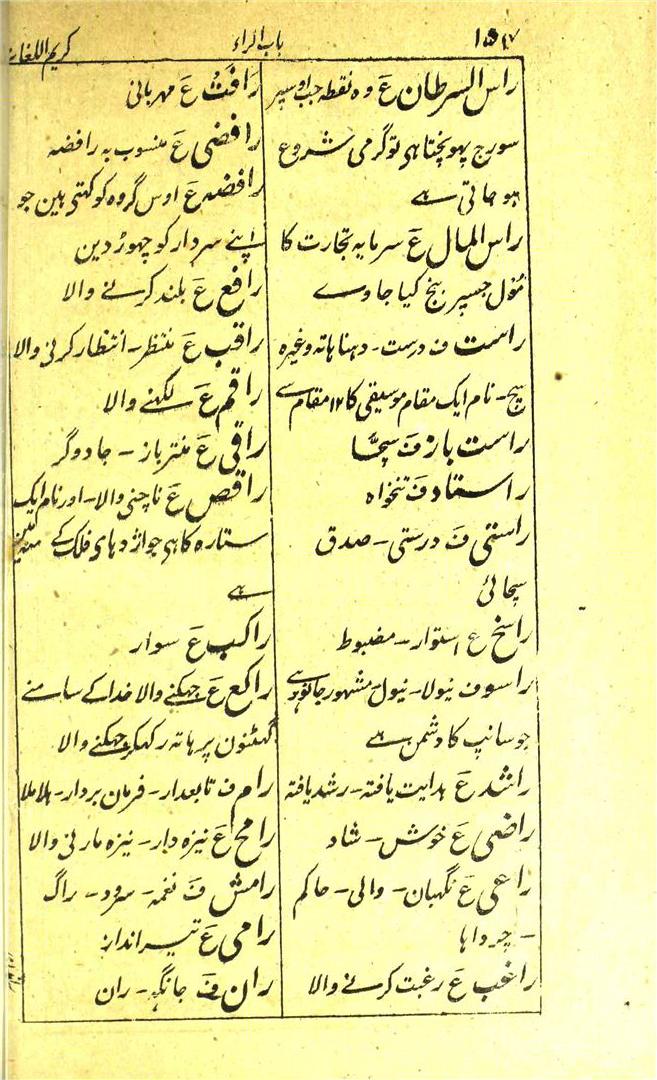 ۱۵۷ باب الراء کریم اللغات
راس السرطان ع وہ نقطہ جب اوسپر
سورج پہونچتا ہی تو گرمی شروع
ہو جاتی ہے
راس المال ع سرمایہ تجارت کا
مول جسپر بنج کیا جاوے
راست ف درست۔ دہنا ہاتہ وغیرہ
سچ۔ نام ایک مقام موسیقی کا ۱۲ مقام سے
راست باز ف سچّا
راستاد ف تنخواہ
راستی ف درستی۔ صدق
سچائی
راسخ ع استوار۔ مضبوط
راسو ف نیولا۔ نیول مشہور جانور ہے
جو سانپ کا دشمن ہے
راشد ع ہدایت یافتہ۔ رشد یافتہ
راضی ع خوش۔ شاد
راعی ع نگہبان۔ والی۔ حاکم
۔ چرواہا
راغب ع رغبت کرنے والا
رافت ع مہربانی
رافضی ع منسوب بہ رافضہ
رافضہ ع اوس گروہ کو کہتی ہین جو
اپنے سردار کو چھوڑ دین
رافع ع بلند کرنے والا
راقب ع منتظر۔ انتظار کرنی والا
راقم ع لکہنے والا
راقی ع منتر باز۔ جادوگر
راقص ع ناچنی والا۔ اور نام ایک
ستارہ کا ہی جو اژدہای فلک کے منہ مین
ہے
راکب ع سوار
راکع ع جہکنے والا خدا کے سامنے
گہٹنون پر ہاتہ رکہکر جہکنے والا
رام ف تابعدار۔ فرمان بردار۔ ہلا ملا
رامح ع نیزہ دار۔ نیزہ مارنی والا
رامش ف نغمہ۔ سرود۔ راگ
رامی ع تیر انداز
ران ف جانگہ۔ ران